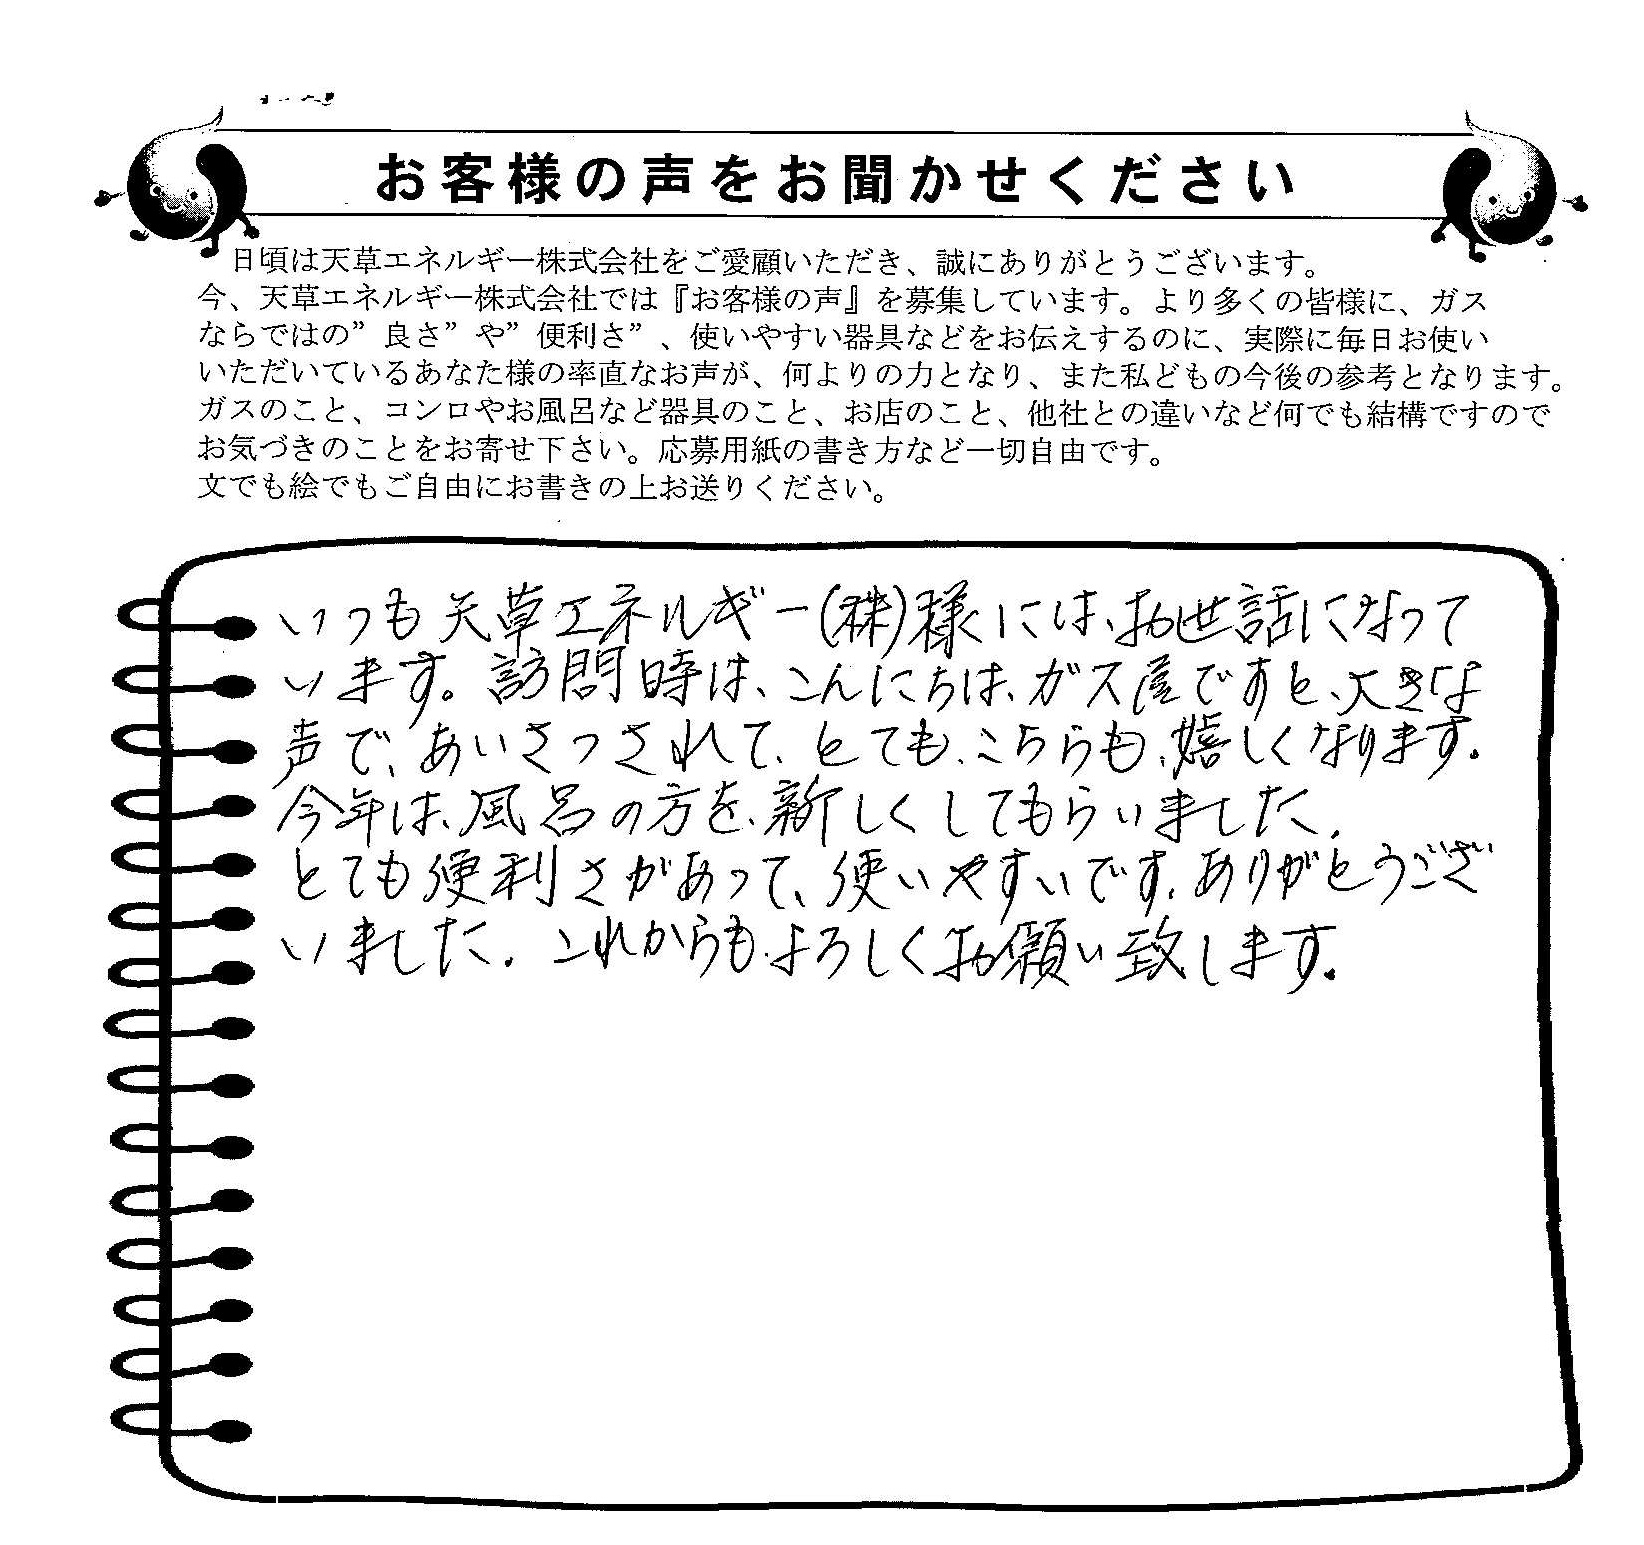 お客様の声をお聞かせください
日頃は天草エネルギー株式会社をご愛顧いただき、誠にありがとうございます。
今、天草エネルギー株式会社では『お客様の声』を募集しています。より多くの皆様に、ガス
ならではの”良さ”や”便利さ”、使いやすい器具などをお伝えするのに、実際に毎日お使い
いただいているあなた様の率直なお声が、何よりの力となり、また私どもの今後の参考となります。
ガスのこと、コンロやお風呂など器具のこと、お店のこと、他社との違いなど何でも結構ですので
お気づきのことをお寄せ下さい。応募用紙の書き方など一切自由です。
文でも絵でもご自由にお書きの上お送りください。
いつも天草エネルギー(株)様には、お世話になって
います。訪問時は、こんにちは、ガス屋ですと、大きな
声で、あいさつされて、とても、こちらも、嬉しくなります。
今年は、風呂の方を、新しくしてもらいました。
とても便利さがあって、使いやすいです。ありがとうござ
いました。これからも、よろしくお願い致します。